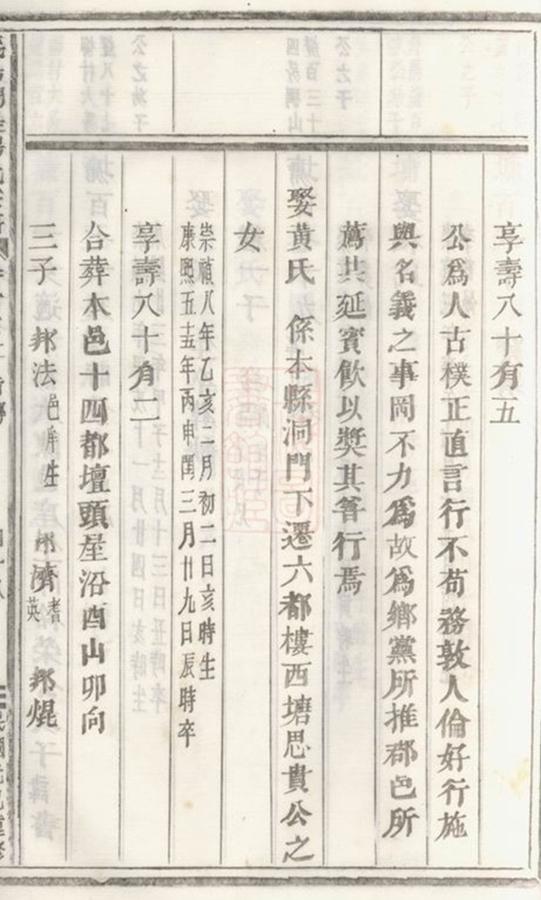 享壽八十有五
公爲人古樸正直言行不苟務敦人倫好行施
與名義之事罔不力爲故爲鄉黨所推郡邑所
薦共延賓飲以奬其善行焉
娶黃氏 係本縣洞門下遷六都樓西塘思貴公之
女
崇禎八年乙亥二月初二日亥時生
康熙五十五年丙申閏三月廿九日辰時卒
享壽八十有二
合葬本邑十四都壇頭壟沿酉山卯向
三子 邦法 邑庠生 邦濟 耆英 邦焜